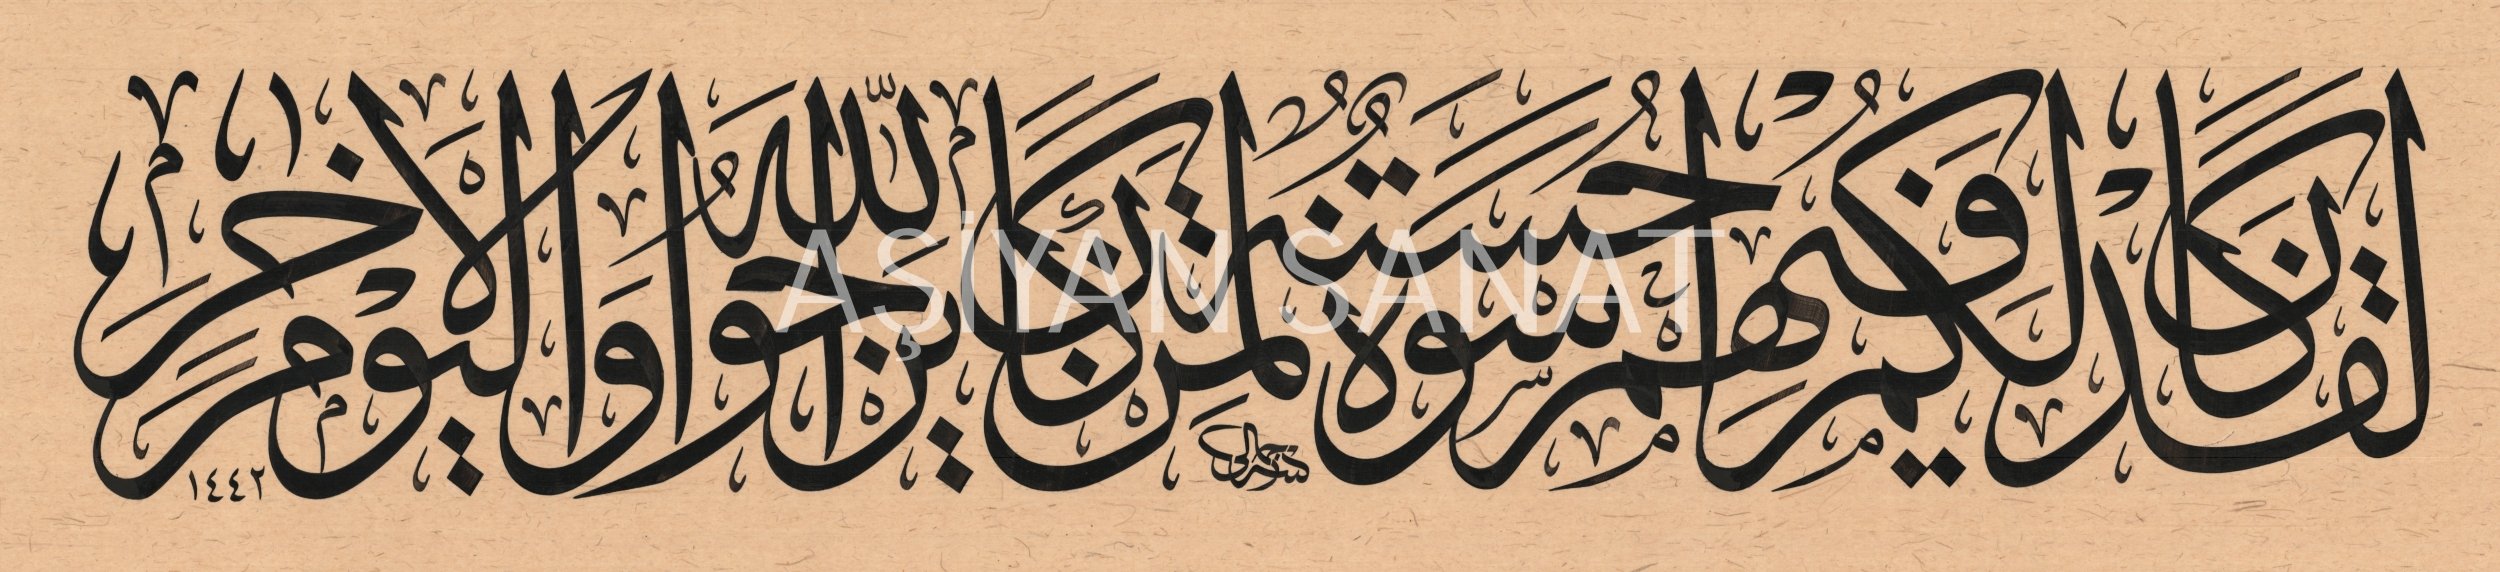 لَقَدْ كَانَ لَكُمْ فِيهِمْ أُسْوَةٌ حَسَنَةٌ لِمَنْ كَانَ يَرْجُوا اللّٰهَ وَالْيَوْمَ الْاٰخِرَ
AŞİYAN SANAT
١٤٤٢